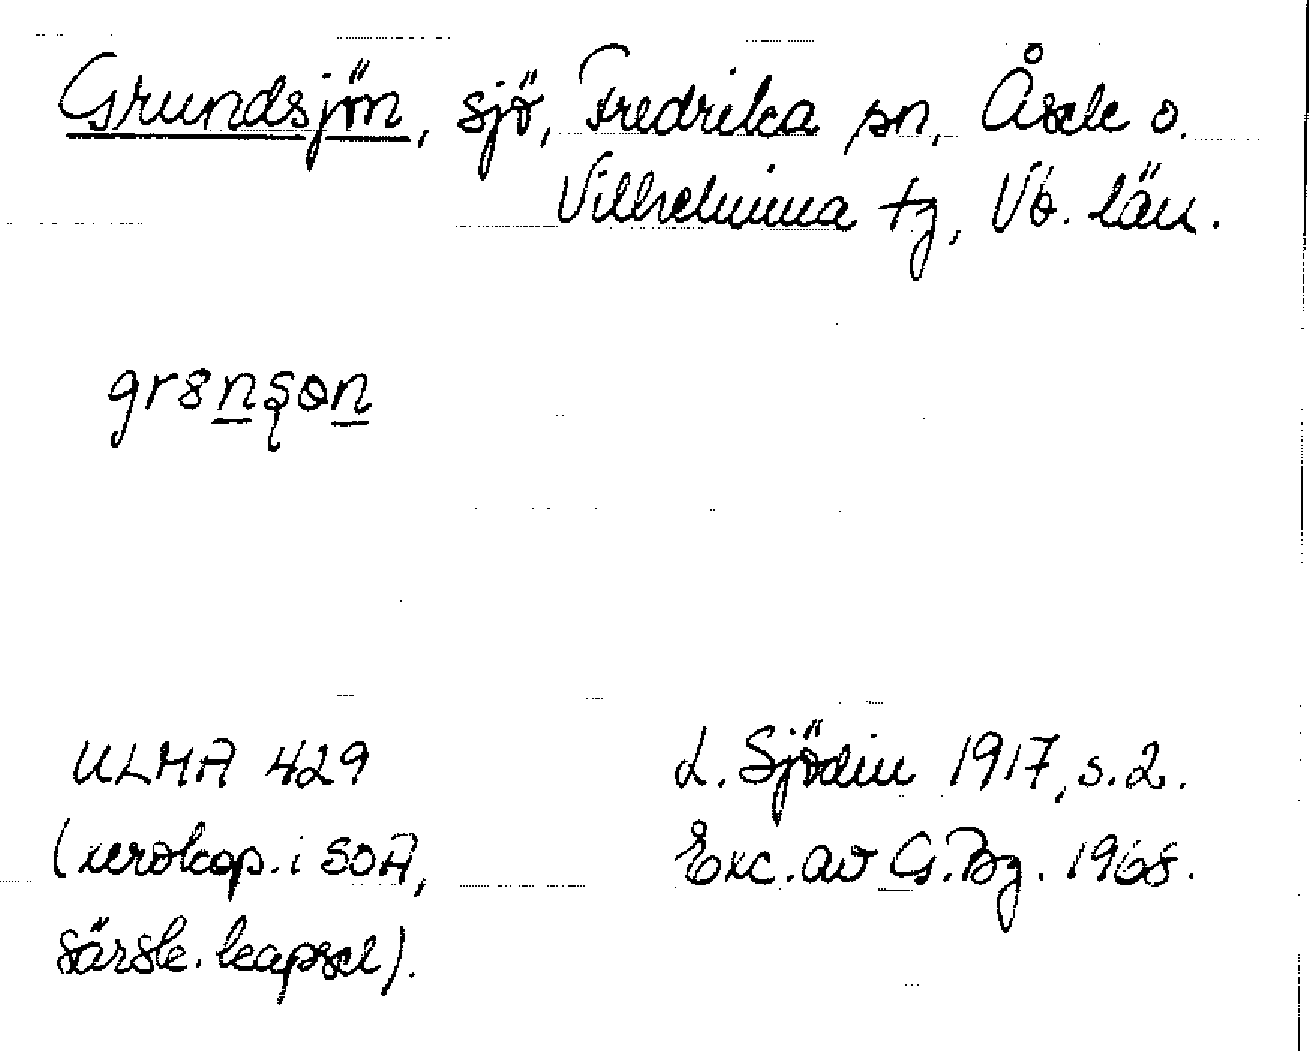 Grundsjön, sjö, Fredrika sn, Åsele o.
Vilhelmina tg, Vb. län.
ULMA 429
(xerokop. i SOA,
särsk. kapsel).
L. Sjödin 1917, s. 2.
Exc. av G. Bg. 1968.